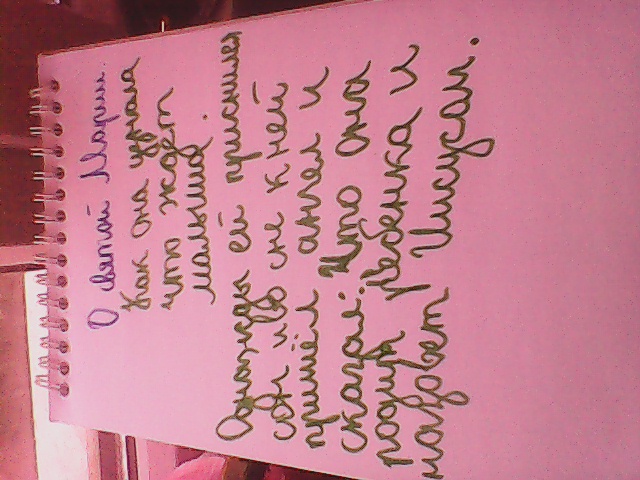 О святой Марии.
Как она узнала
что ждет
малыша.
Однажды ей приснился
сон и во сне к ней
пришёл ангел и
сказал: Что она
родит ребенка и
назовет Иисусам.